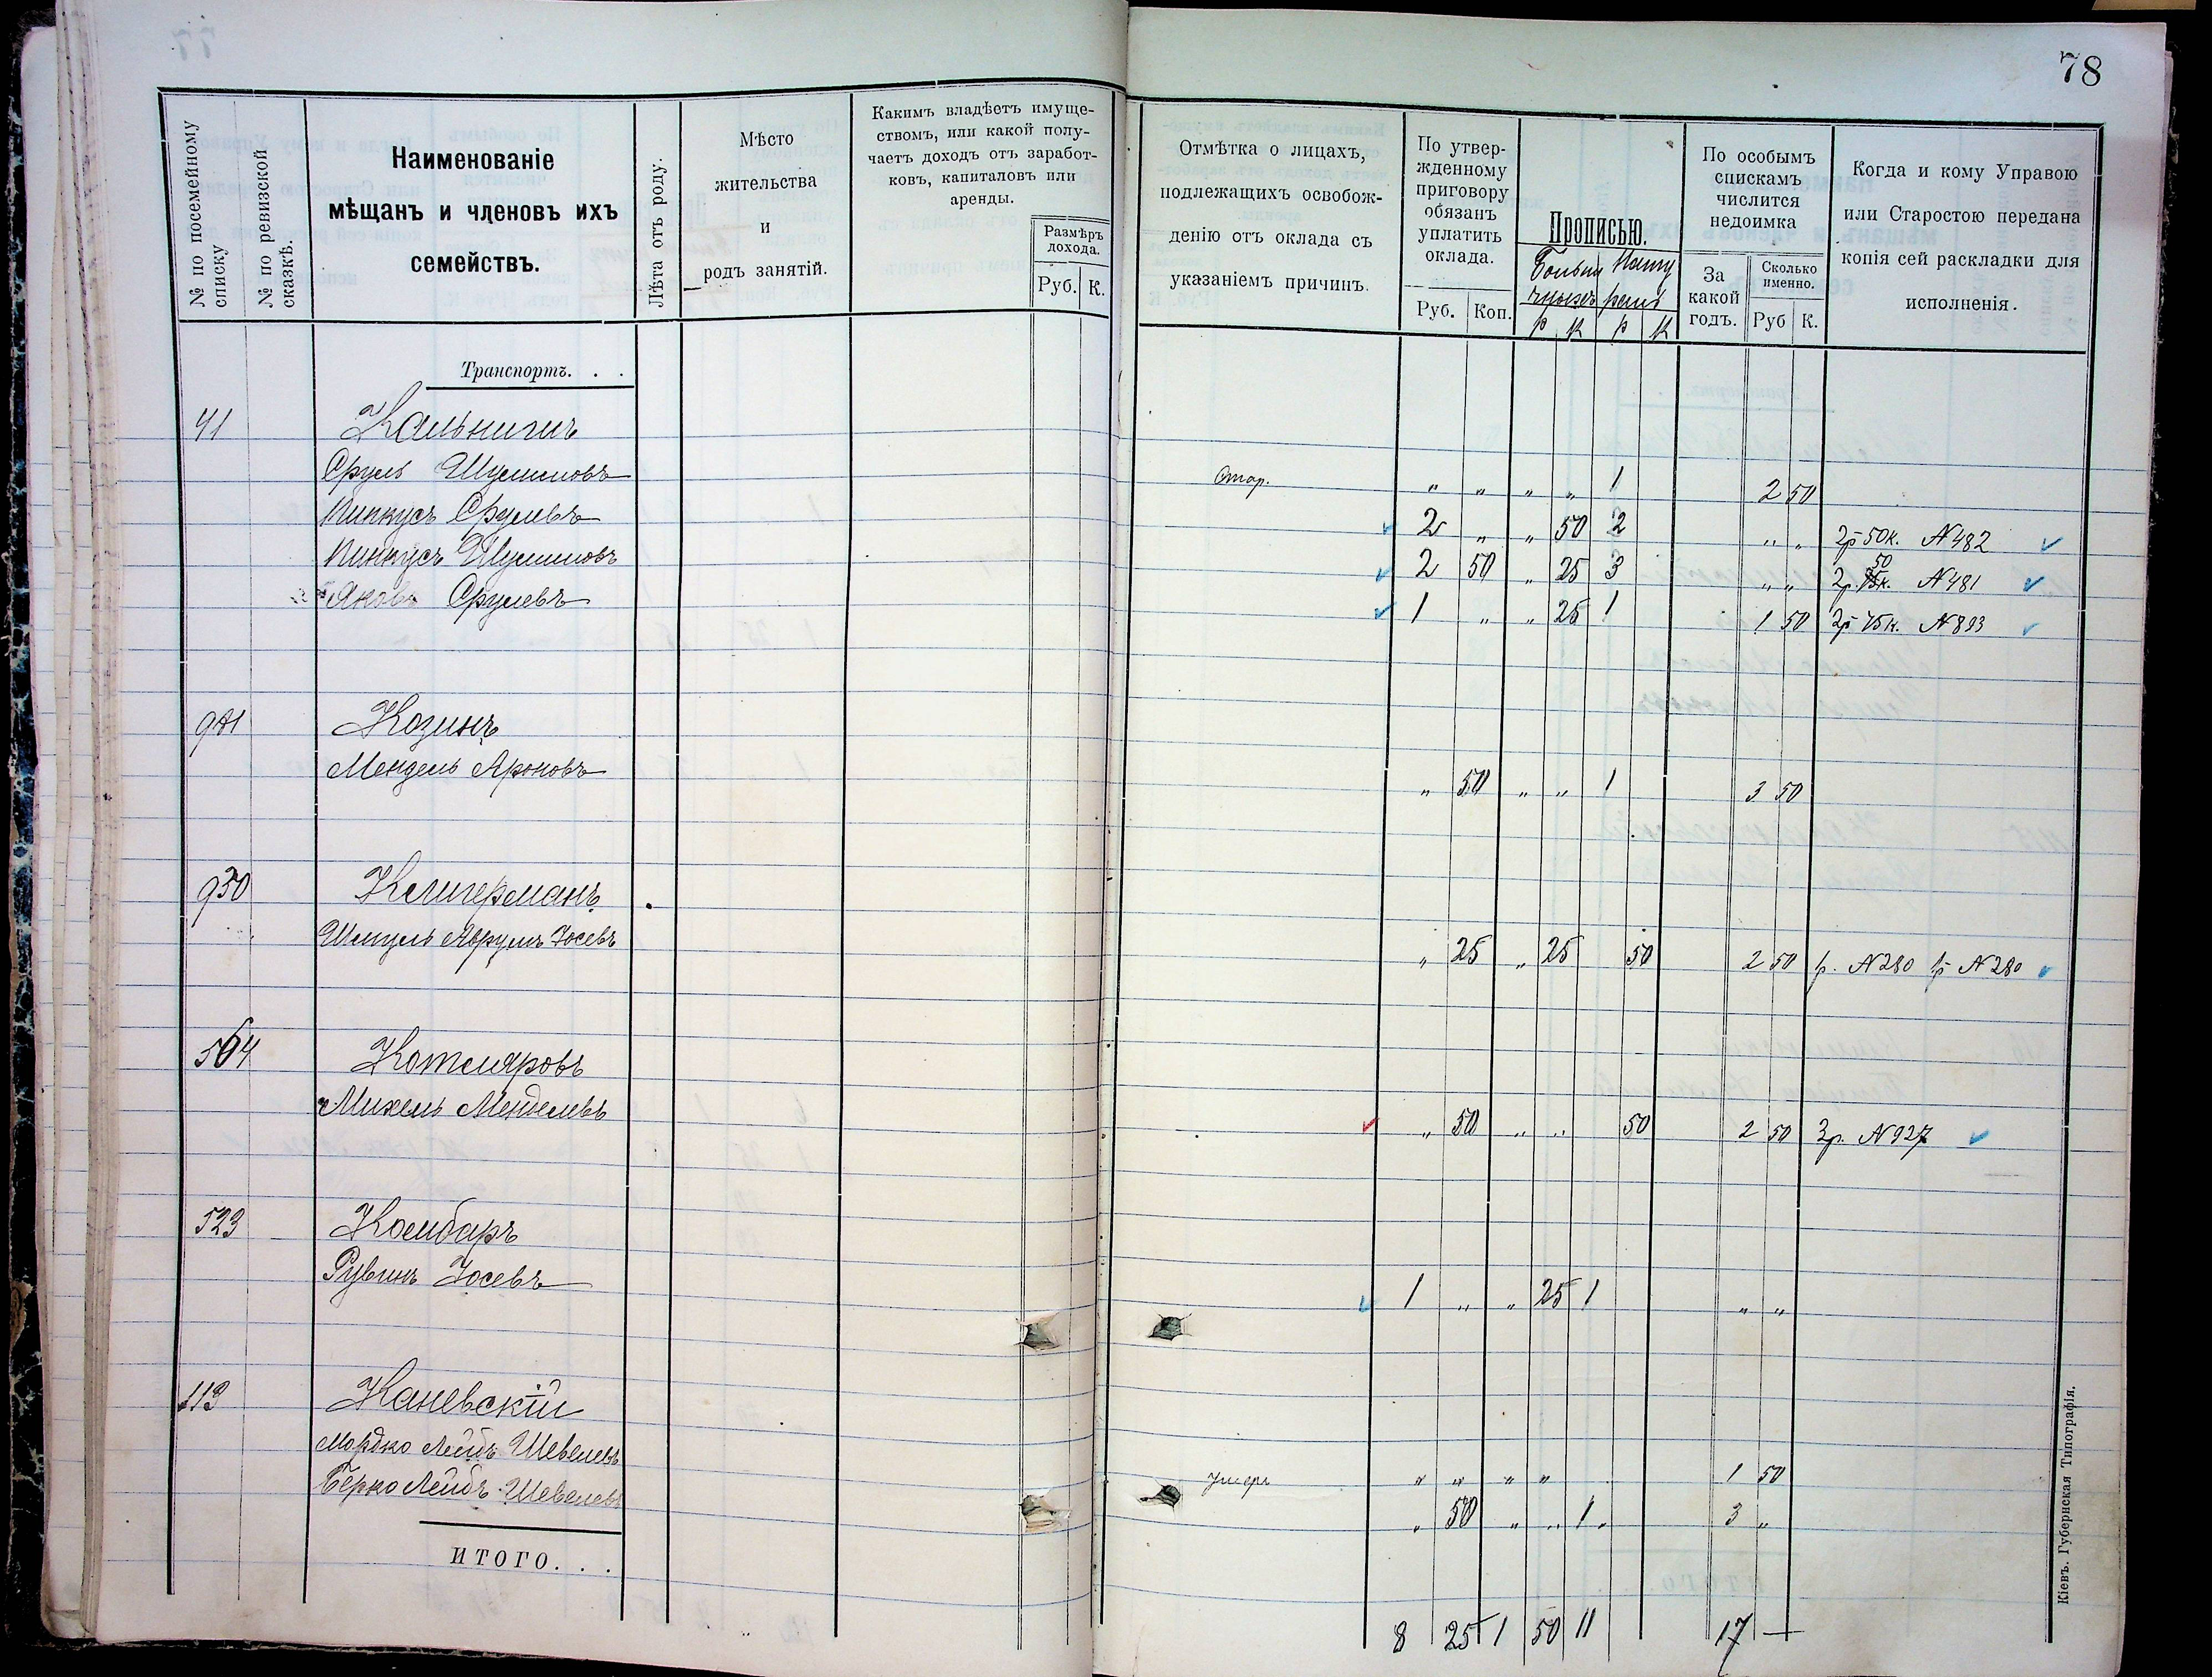 78
№ по посемейному списку
№ по ревизской сказкѣ.
Наименованіе
мѣщанъ и членовъ ихъ
семействъ.
Лѣта отъ роду.
Мѣсто
жительства
и
родъ занятій.
Какимъ владѣетъ имуще-
ствомъ, или какой полу-
чаетъ доходъ отъ заработ-
ковъ, капиталовъ или
аренды.
Размѣръ
дохода.
Руб. К.
Отмѣтка о лицахъ,
подлежащихъ освобож-
денію отъ оклада съ
указаніемъ причинъ.
По утвер-
жденному
приговору
обязанъ
уплатить
оклада.
Руб. Коп.
Прописью.
р к р к
По особымъ
спискамъ
числится
недоимка
За
какой
годъ.
Сколько
именно.
Руб К.
Когда и кому Управою
или Старостою передана
копія сей раскладки для
исполненія.
Транспортъ. . .
41 Кальнигъ
Сруль Шулимовъ Стар. „ „ „ „ 1 2 50
Пинкусъ Срулевъ 2 „ „ 50 2 „ „ 2р 50к. №482
Пинкусъ Шулимовъ 2 50 „ 25 3 „ „ 2р. 50 к. №481
Яковъ Срулевъ 1 „ „ 25 1 1 50 2р 75к. №893
981 Козинъ
Мендель Ароновъ „ 50 „ „ 1 3 50
950 Клигерманъ
Шмуль Аврумъ Іосевъ „ 25 „ 25 50 2 50 р. №280 1р №280
564 Котляровъ
Михель Менделевъ „ 50 „ „ 50 2 50 3р. №927
523 Комбаръ
Рувинъ Іосевъ 1 „ „ 25 1 „ „
113 Каневскій
Мордко Лейбъ Шевелевъ Умеръ „ „ „ „ 1 50
Берко Лейбъ Шевелевъ „ 50 „ „ 1 „ 3 „
ИТОГО. . .
8 25 1 50 11 17 —
Кіевъ. Губернская Типографія.